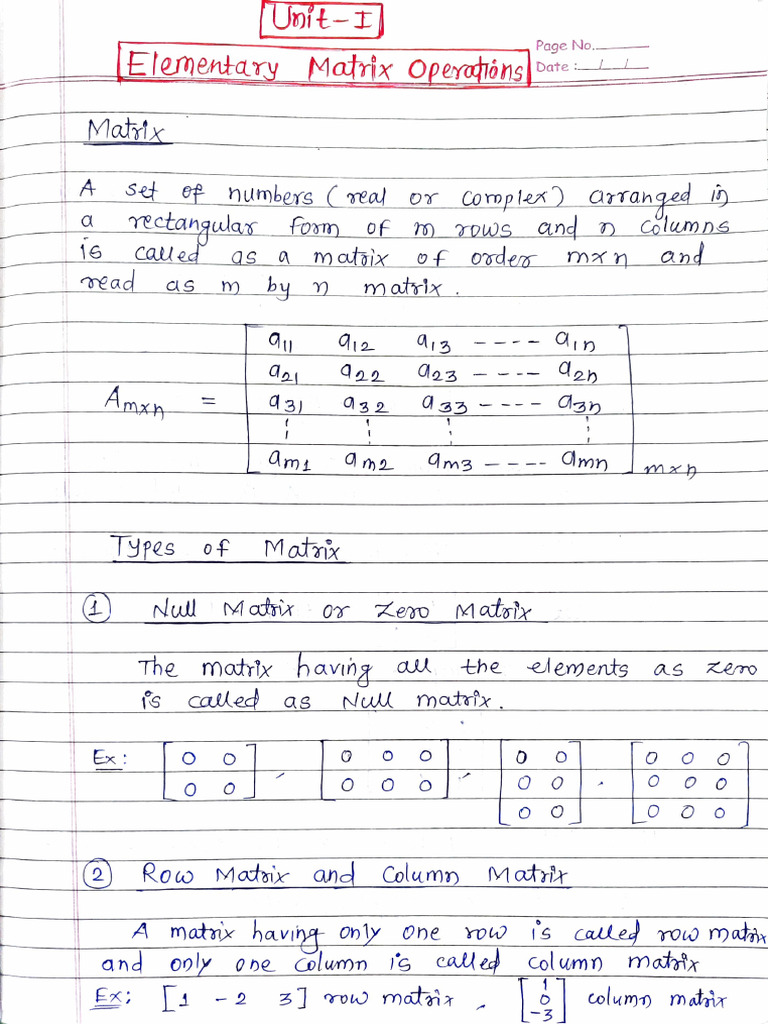 Unit-I
Page No.
Elementary Matrix Operations
Date : / /
Matrix
A set of numbers (real or complex) arranged in
a rectangular form of m rows and n columns
is called as a matrix of order m×n and
read as m by n matrix.
a11 a12 a13 ---- a1n
a21 a22 a23 ---- a2n
Am×n = a31 a32 a33 ---- a3n
⋮ ⋮ ⋮ ⋮
am1 am2 am3 ---- amn m×n
Types of Matrix
① Null Matrix or Zero Matrix
The matrix having all the elements as zero
is called as Null matrix.
Ex: [0 0 [0 0 0 [0 0 [0 0 0
0 0] , 0 0 0] , 0 0 , 0 0 0
0 0] 0 0 0]
② Row Matrix and Column Matrix
A matrix having only one row is called row matrix
and only one column is called column matrix
Ex: [1 -2 3] row matrix , [1 0 -3] column matrix